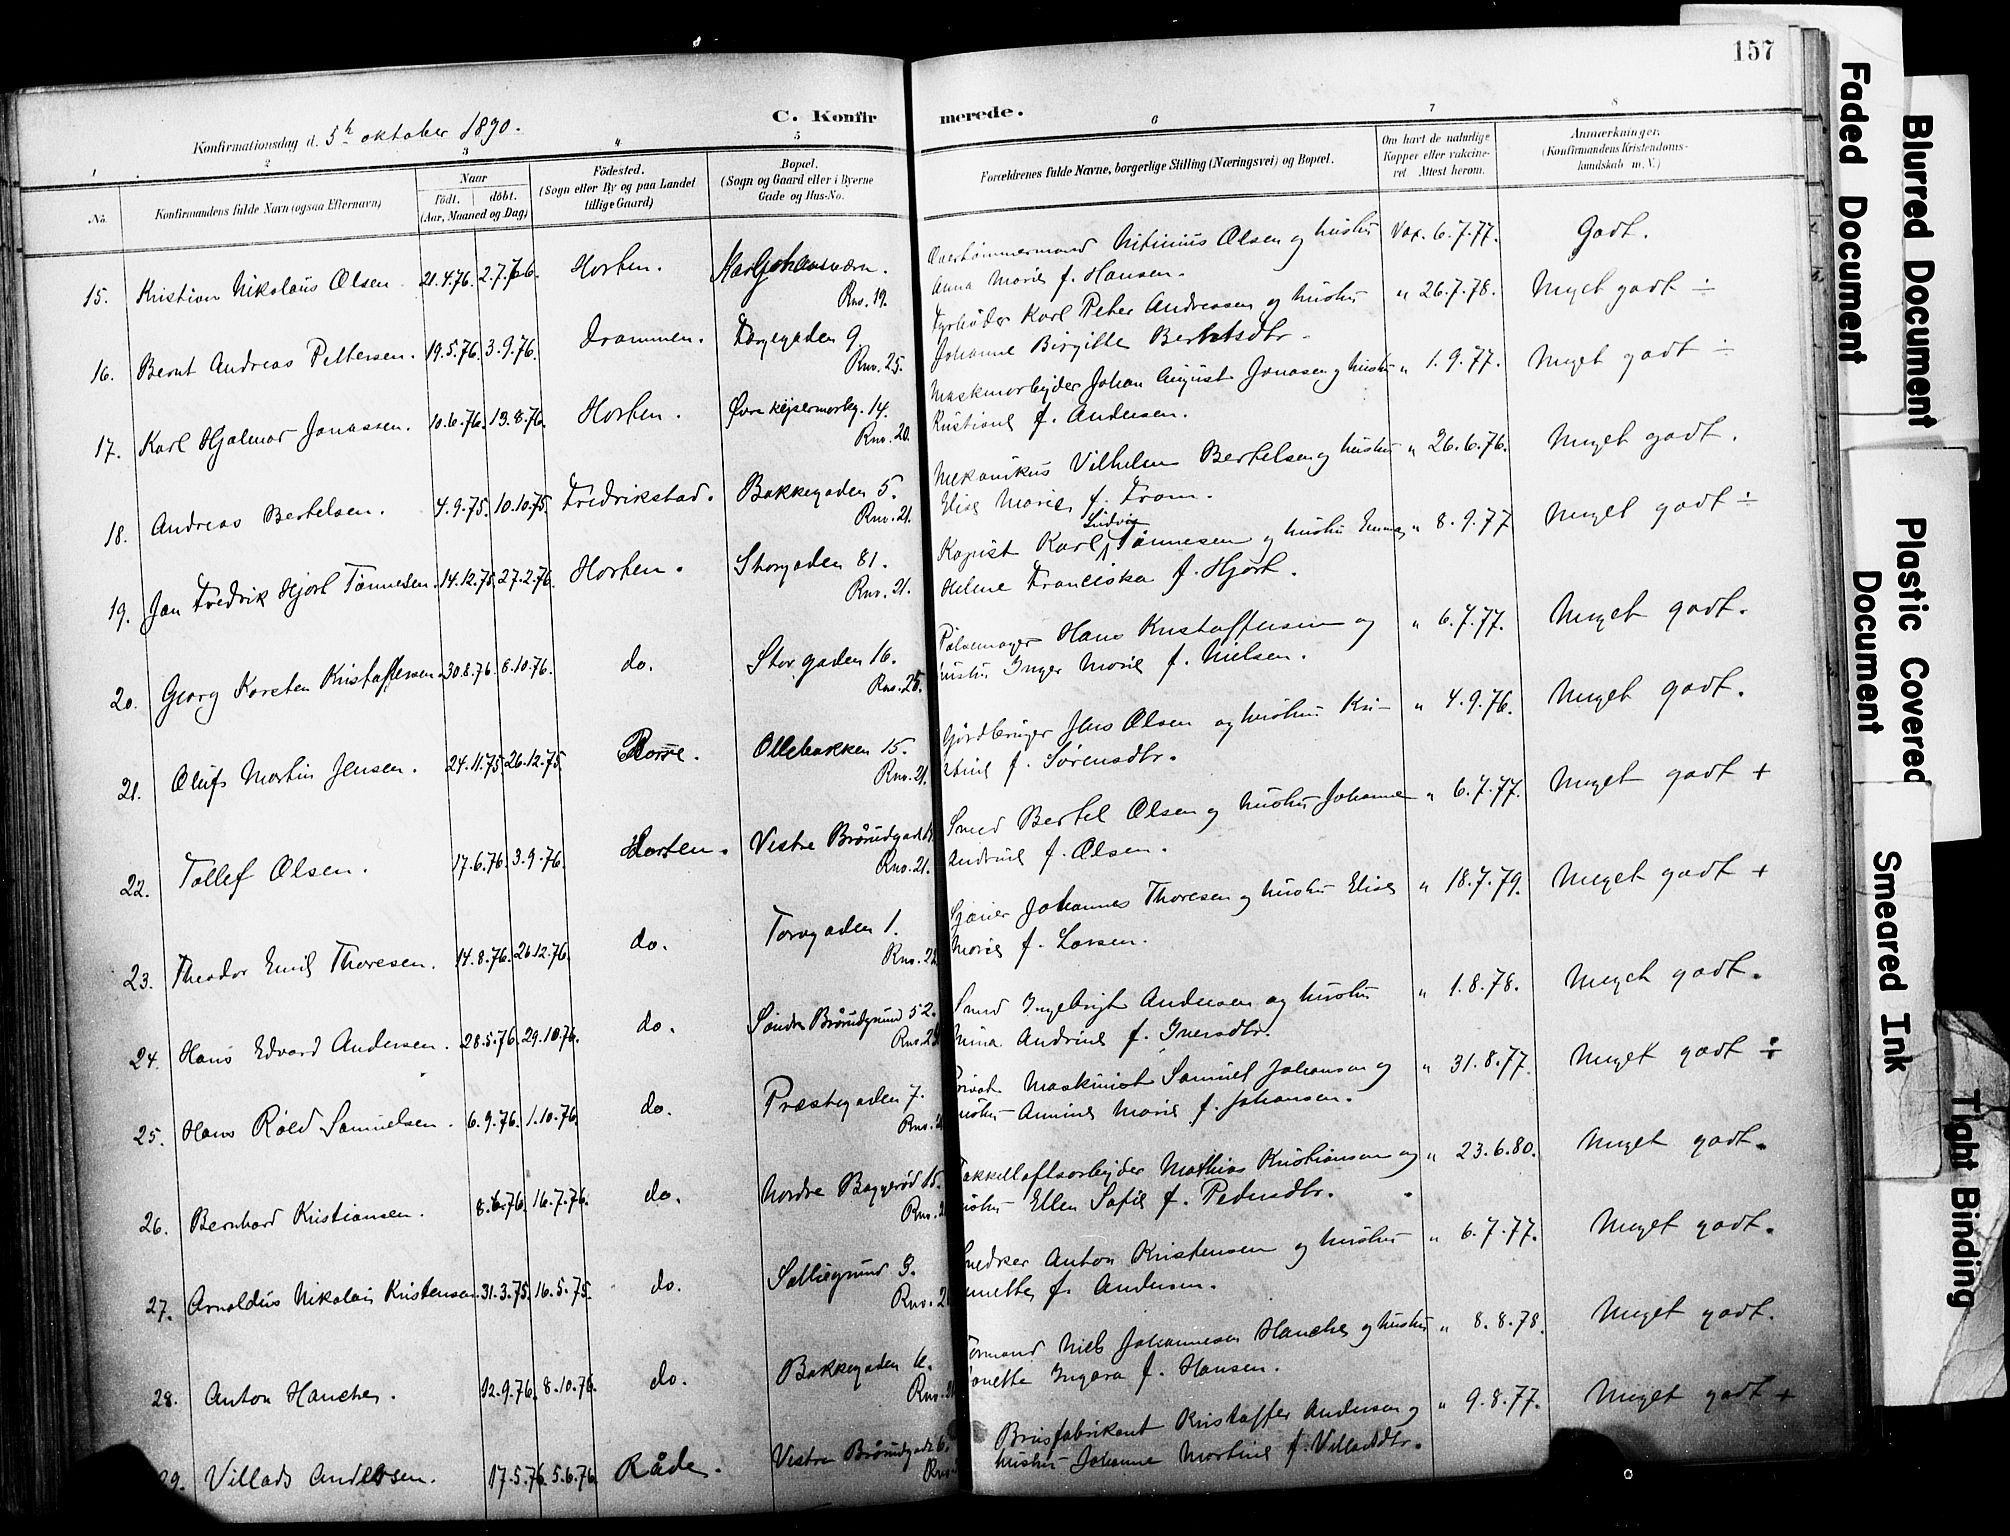 157
C. Konfirmerede.
Konfirmationsdag d. 5te oktober 1890.
1 2 3 4 5 6 7 8
No. Konfirmandens fulde Navn (ogsaa Efternavn) Naar født. døbt. (Aar, Maaned og Dag) Fødested. (Sogn eller By og paa Landet tillige Gaard) Bopæl. (Sogn og Gaard eller i Byerne Gade og Hus-No. Forældrenes fulde Navne, borgerlige Stilling (Næringsvei) og Bopæl. Om havt de naturlige Kopper eller vakcineret Attest herom. Anmærkninger. (Konfirmandens Kristendomskundskab m. V.)
15. Kristian Nikolaus Olsen 21.4.76. 2.7.76. Horten. Karljohansværn. Rnv. 19. Overtømmermand Olsen og hustru Anna Marie f. Hansen. Vax. 6.7.77. Godt.
16. Bernt Andreas Pettersen. 19.5.76. 3.9.76. Drammen. Torvegaden 9. Rnv. 25. Fyrbøder Karl Peter Andreasen og hustru Johanne Birgitte Berntsdtr. " 26.7.78. Meget godt ÷
17. Karl Hjalmar Jonassen. 10.6.76. 13.8.76. Horten. Øvre Kejsermarkg. 14. Rnv. 20. Maskinarbejder Johan August Jonasen og hustru Kristiane f. Andersen. " 1.9.77. Meget godt ÷
18. Andreas Bertelsen. 4.9.75. 10.10.75. Fredrikstad. Bakkegaden 5. Rnv. 21. Mekanikus Vilhelm Bertelsen og hustru Elise Marie f. Fram. " 26.6.76. Meget godt.
19. Jan Fredrik Hjort Tønnesen. 14.12.75. 27.2.76. Horten. Storgaden 81. Rnv. 21. Kopist Karl Ludvig Tønnesen og hustru Emma Helene Franciska f. Hjort. " 8.9.77 Meget godt ÷
20. Georg Karsten Kristoffersen. 30.8.76. 8.10.76. do. Storgaden 16. Rnv. 25. Pølsemager Hans Kristoffersen og hustru Inger Marie f. Nielsen. " 6.7.77. Meget godt.
21. Oluf Martin Jensen. 24.11.75. 26.12.75. Borre. Ollebakken 15. Rnv. 21. Gårdbruger Jens Olsen og hustru Katrine f. Sørensdtr. " 4.9.76. Meget godt.
22. Tollef Olsen. 17.6.76. 3.9.76. Horten. Vestre Brårudgade Rnv. 21. Smed Bertel Olsen og hustru Johanne Andrine f. Olsen. " 6.7.77. Meget godt +
23. Theodor Emil Thoresen. 14.8.76. 26.12.76. do. Torvgaden 1. Rnv. Sjøier Johannes Thoresen og hustru Elise Marie f. Larsen. " 18.7.79. Meget godt +
24. Hans Edvard Andersen. 28.5.76. 29.10.76. do. Søndre Brårudgrund 52. Rnv. Smed Ingebrigt Andersen og hustru Andrine f. Iversdtr. " 1.8.78. Meget godt.
25. Hans Roald Samuelsen. 6.9.76. 1.10.76. do. Præstegaden 7. Rnv. Privat Maskinist Samuel Johansen og hustru Marie f. Johansen. " 31.8.77. Meget godt ÷
26. Bernhard Kristiansen. 8.6.76. 16.7.76. do. Nordre Baggerød 15. Rnv. Takkelloftsarbejder Mathias Kristiansen og hustru Ellen Sofie f. Pedersdtr. " 23.6.80. Meget godt.
27. Arnoldus Nikolai Kristensen. 31.3.75. 16.5.75. do. Solliegrund 3. Rnv. Snedker Anton Kristensen og hustru f. Andersen. " 6.7.77. Meget godt.
28. Anton Hanche. 12.9.76. 8.10.76. do. Bakkegaden Rnv. Formand Niels Johannesen Hanche og hustru f. Hansen. " 8.8.78. Meget godt.
29. Villads Andersen. 17.5.76. 5.6.76. Råde. Vestre Brårudgade 6. Rnv. Brusfabrikant Kristoffer Andersen og hustru Johanne Martine f. Villadsdtr. " 9.8.77. Meget godt +
Faded Document
Blurred Document
Plastic Covered Document
Smeared Ink
Tight Binding